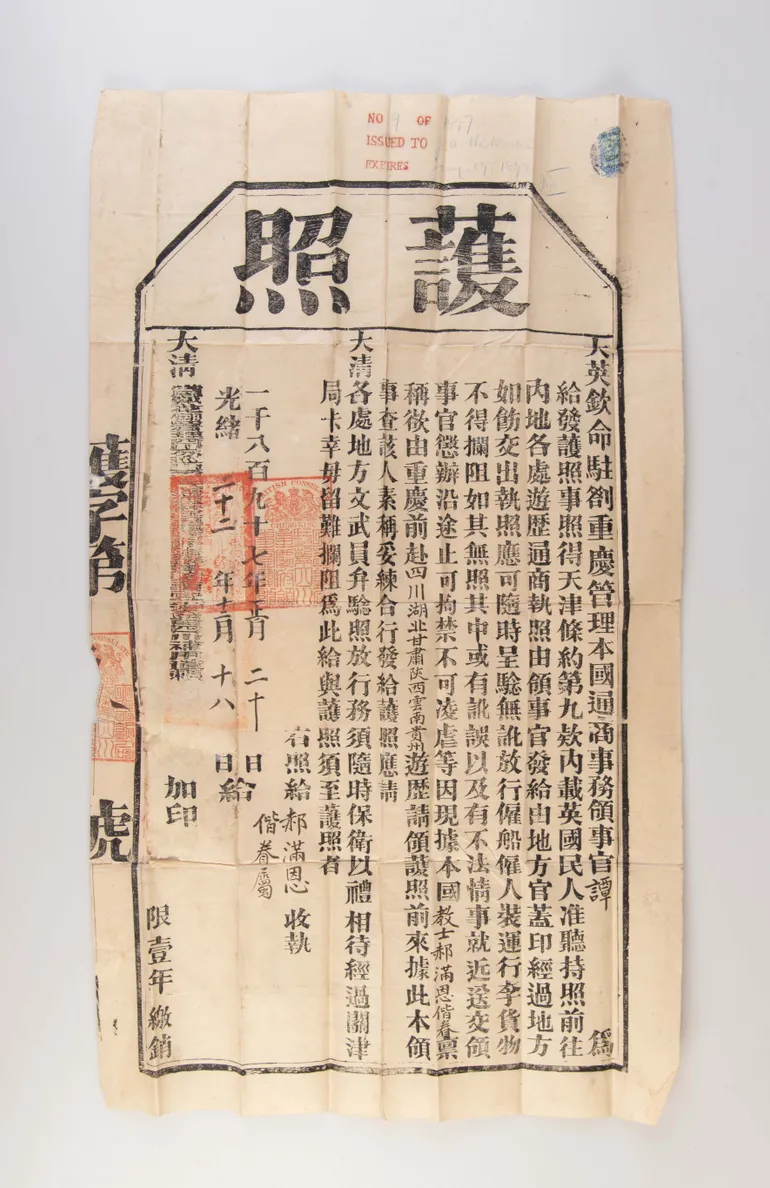 NO 9 OF 97
ISSUED TO
EXPIRES
護照
大英欽命駐劄重慶管理本國通商事務領事官譚 爲
給發護照事照得天津條約第九欵內載英國民人准聽持照前往
內地各處遊歷通商執照由領事官發給由地方官蓋印經過地方
如飭交出執照應可隨時呈騐無訛放行僱船僱人裝運行李貨物
不得攔阻如其無照其中或有訛誤以及有不法情事就近送交領
事官懲辦沿途止可拘禁不可凌虐等因現據本國教士郝滿恩偕眷稟
稱欲由重慶前赴四川湖北甘肅陝西雲南貴州遊歷請領護照前來據此本領
事查該人素稱妥練合行發給護照應請
大清各處地方文武員弁騐照放行務須隨時保衛以禮相待經過關津
局卡幸毋留難攔阻爲此給與護照須至護照者
右照給郝滿恩偕眷屬收執
一千八百九十七年正月二十日
光緒二十二年十二月十八日給
大清
加印
限壹年繳銷
護字第
號